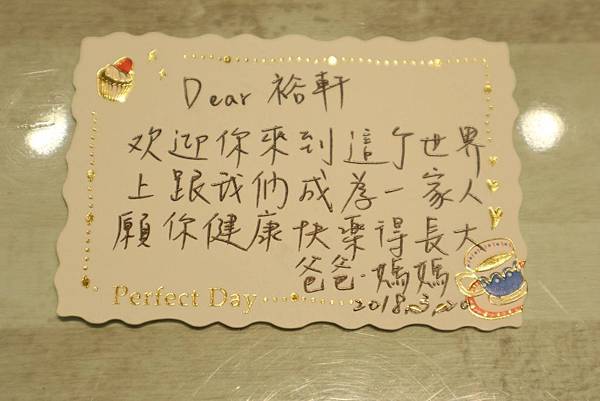 Dear 裕軒
欢迎你來到這个世界
上跟我們成為一家人
願你健康快樂得長大
爸爸.媽媽
2018.3.20
Perfect Day